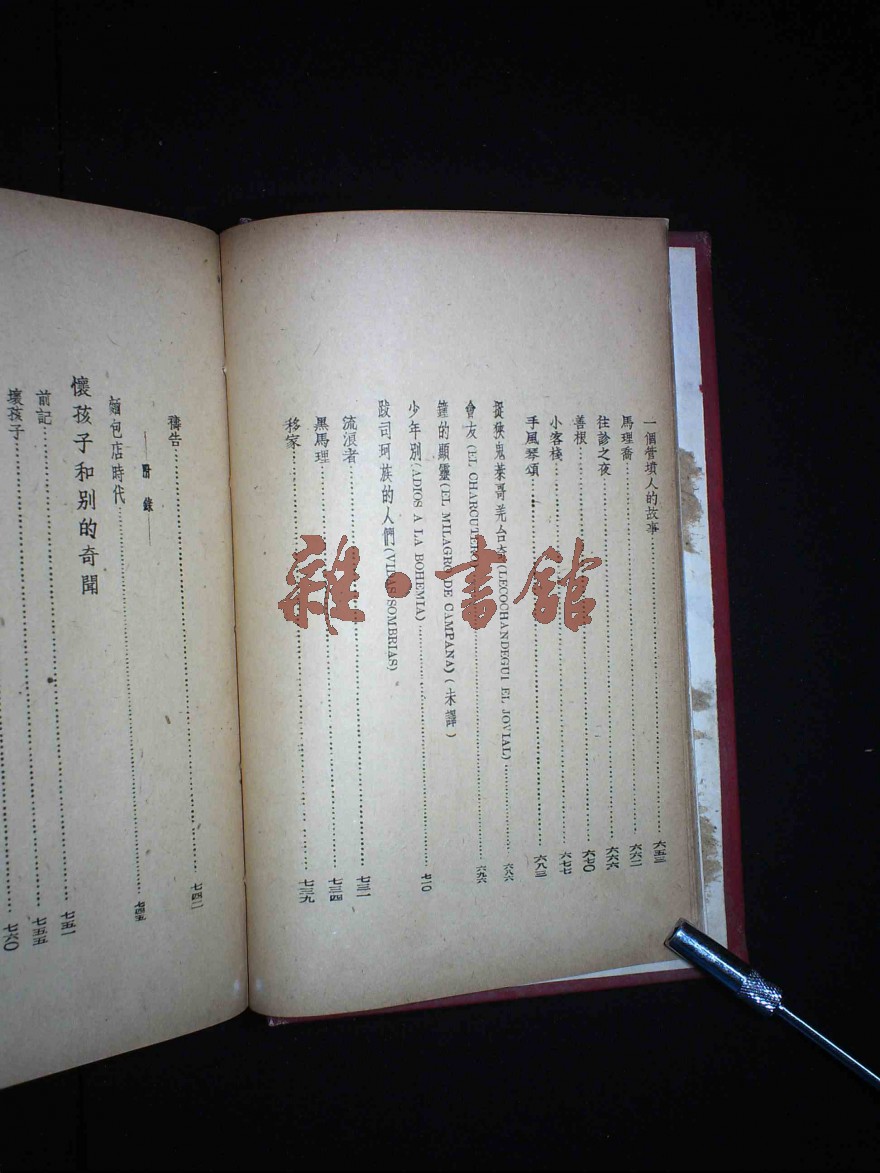 一個管墳人的故事……六五三
馬理喬……六六二
往診之夜……六六六
善根……六七〇
小客棧……六七七
手風琴頌……六八三
促狹鬼萊哥羌台奇(LECOCHANDEGUI EL JOVIAL)……六八六
會友(EL CHARCUTERO……六九六
鐘的顯靈(EL MILAGRO DE CAMPANA)(未譯)
少年別(ADIOS A LA BOHEMIA)……七一〇
跋司珂族的人們(VIDAS SOMBRIAS)
流浪者……七三一
黑馬理……七三四
移家……七三九
禱告……七四二
——附錄——
麵包店時代……七四五
懷孩子和別的奇聞
前記……七五一
……七五五
壞孩子……七六〇
雜·書館